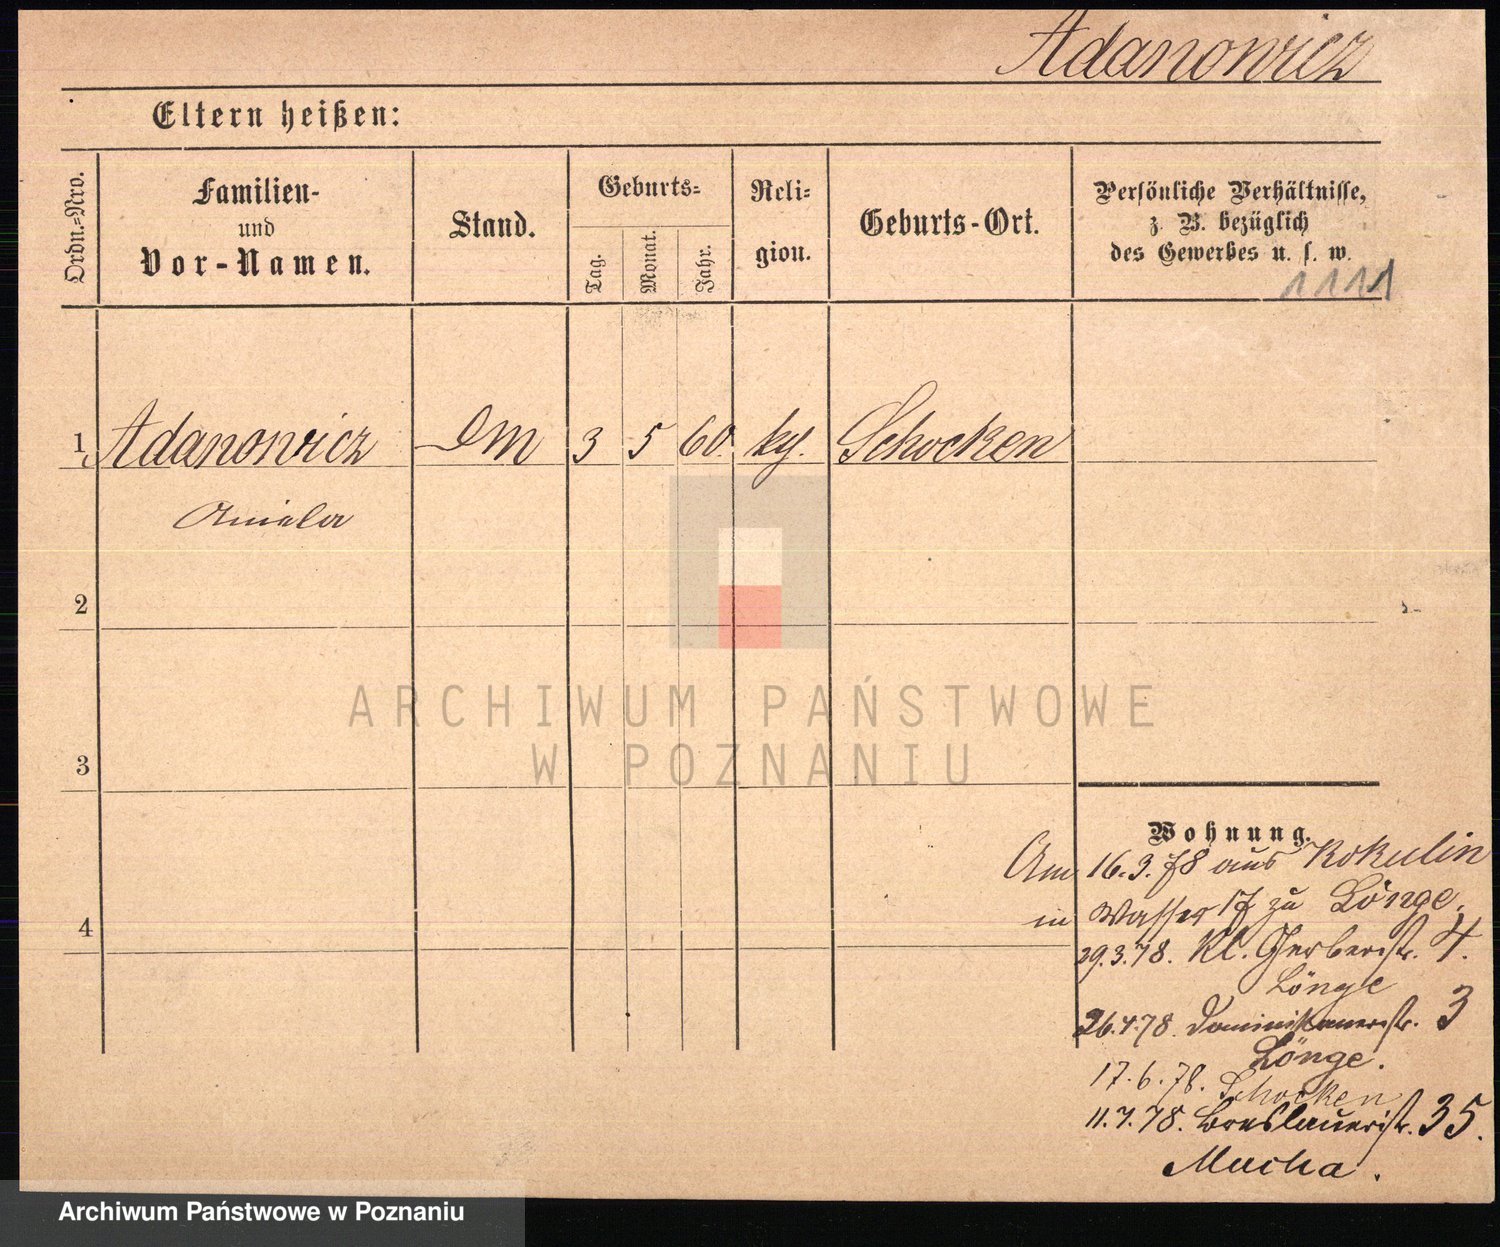 Adanowicz
Eltern heißen:
Ordn.=Nro.
Familien-
und
Vor-Namen.
Stand.
Geburts=
Tag.
Monat.
Jahr.
Reli=
gion.
Geburts-Ort.
Persönliche Verhältnisse,
z. B. bezüglich
des Gewerbes u. s. w.
1111
1 Adanowicz DM 3 5 60 kg. Schocken
Aniela
2
3
4
Wohnung.
Am 16.3.78 aus Kokulin
in Wasser 17 zu Lönge.
29.3.78. Kl. Gerberstr. 4.
Lönge
26.4.78. Dominikanerstr. 3
Lönge.
17.6.78. Schocken
11.7.78. Breslauerstr. 35.
Mucha.
ARCHIWUM PAŃSTWOWE
W POZNANIU
Archiwum Państwowe w Poznaniu